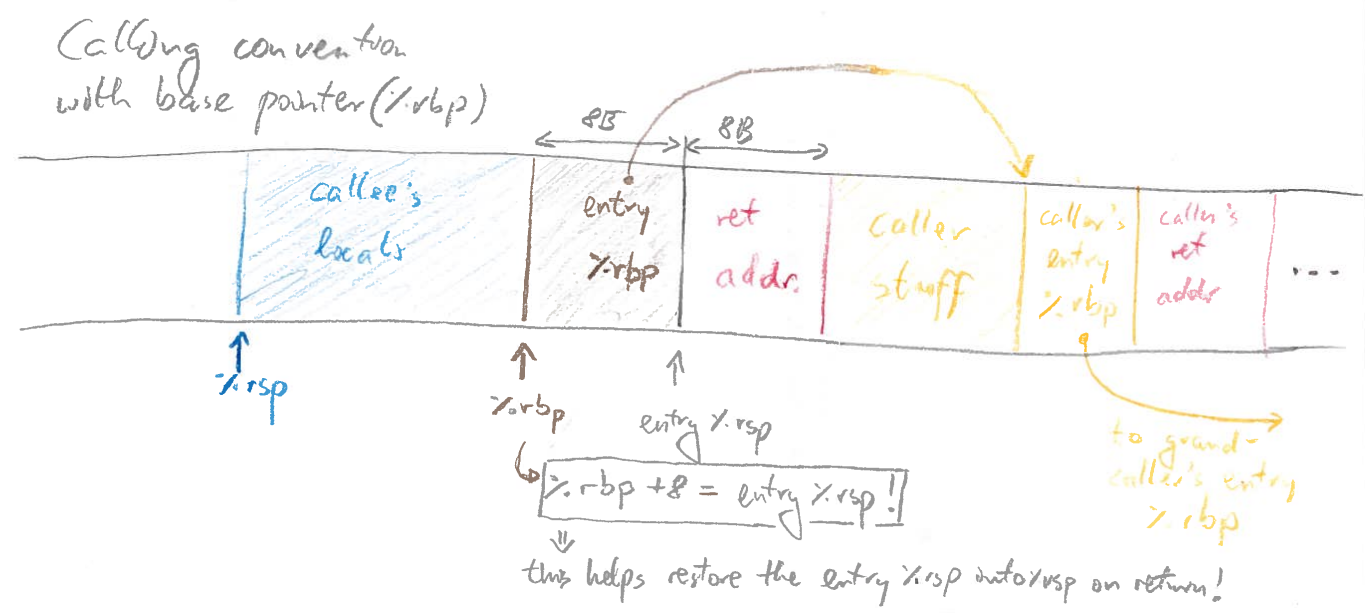 Calling convention
with base pointer (%rbp)
8B
8B
callee's
locals
entry
%rbp
ret
addr.
caller
stuff
caller's
entry
%rbp
caller's
ret
addr
...
%rsp
%rbp
entry %rsp
%rbp +8 = entry %rsp!
this helps restore the entry %rsp into %rsp on return!
to grand-
caller's entry
%rbp